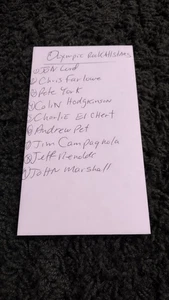 Olympic RockAllstars
① JON Lord
② Chris Farlowe
③ Pete York
④ Colin Hodgkinson
⑤ Charlie
⑥ Andrew
⑦ Jim Campagnola
⑧ Jeff
⑨ JOHN Marshall